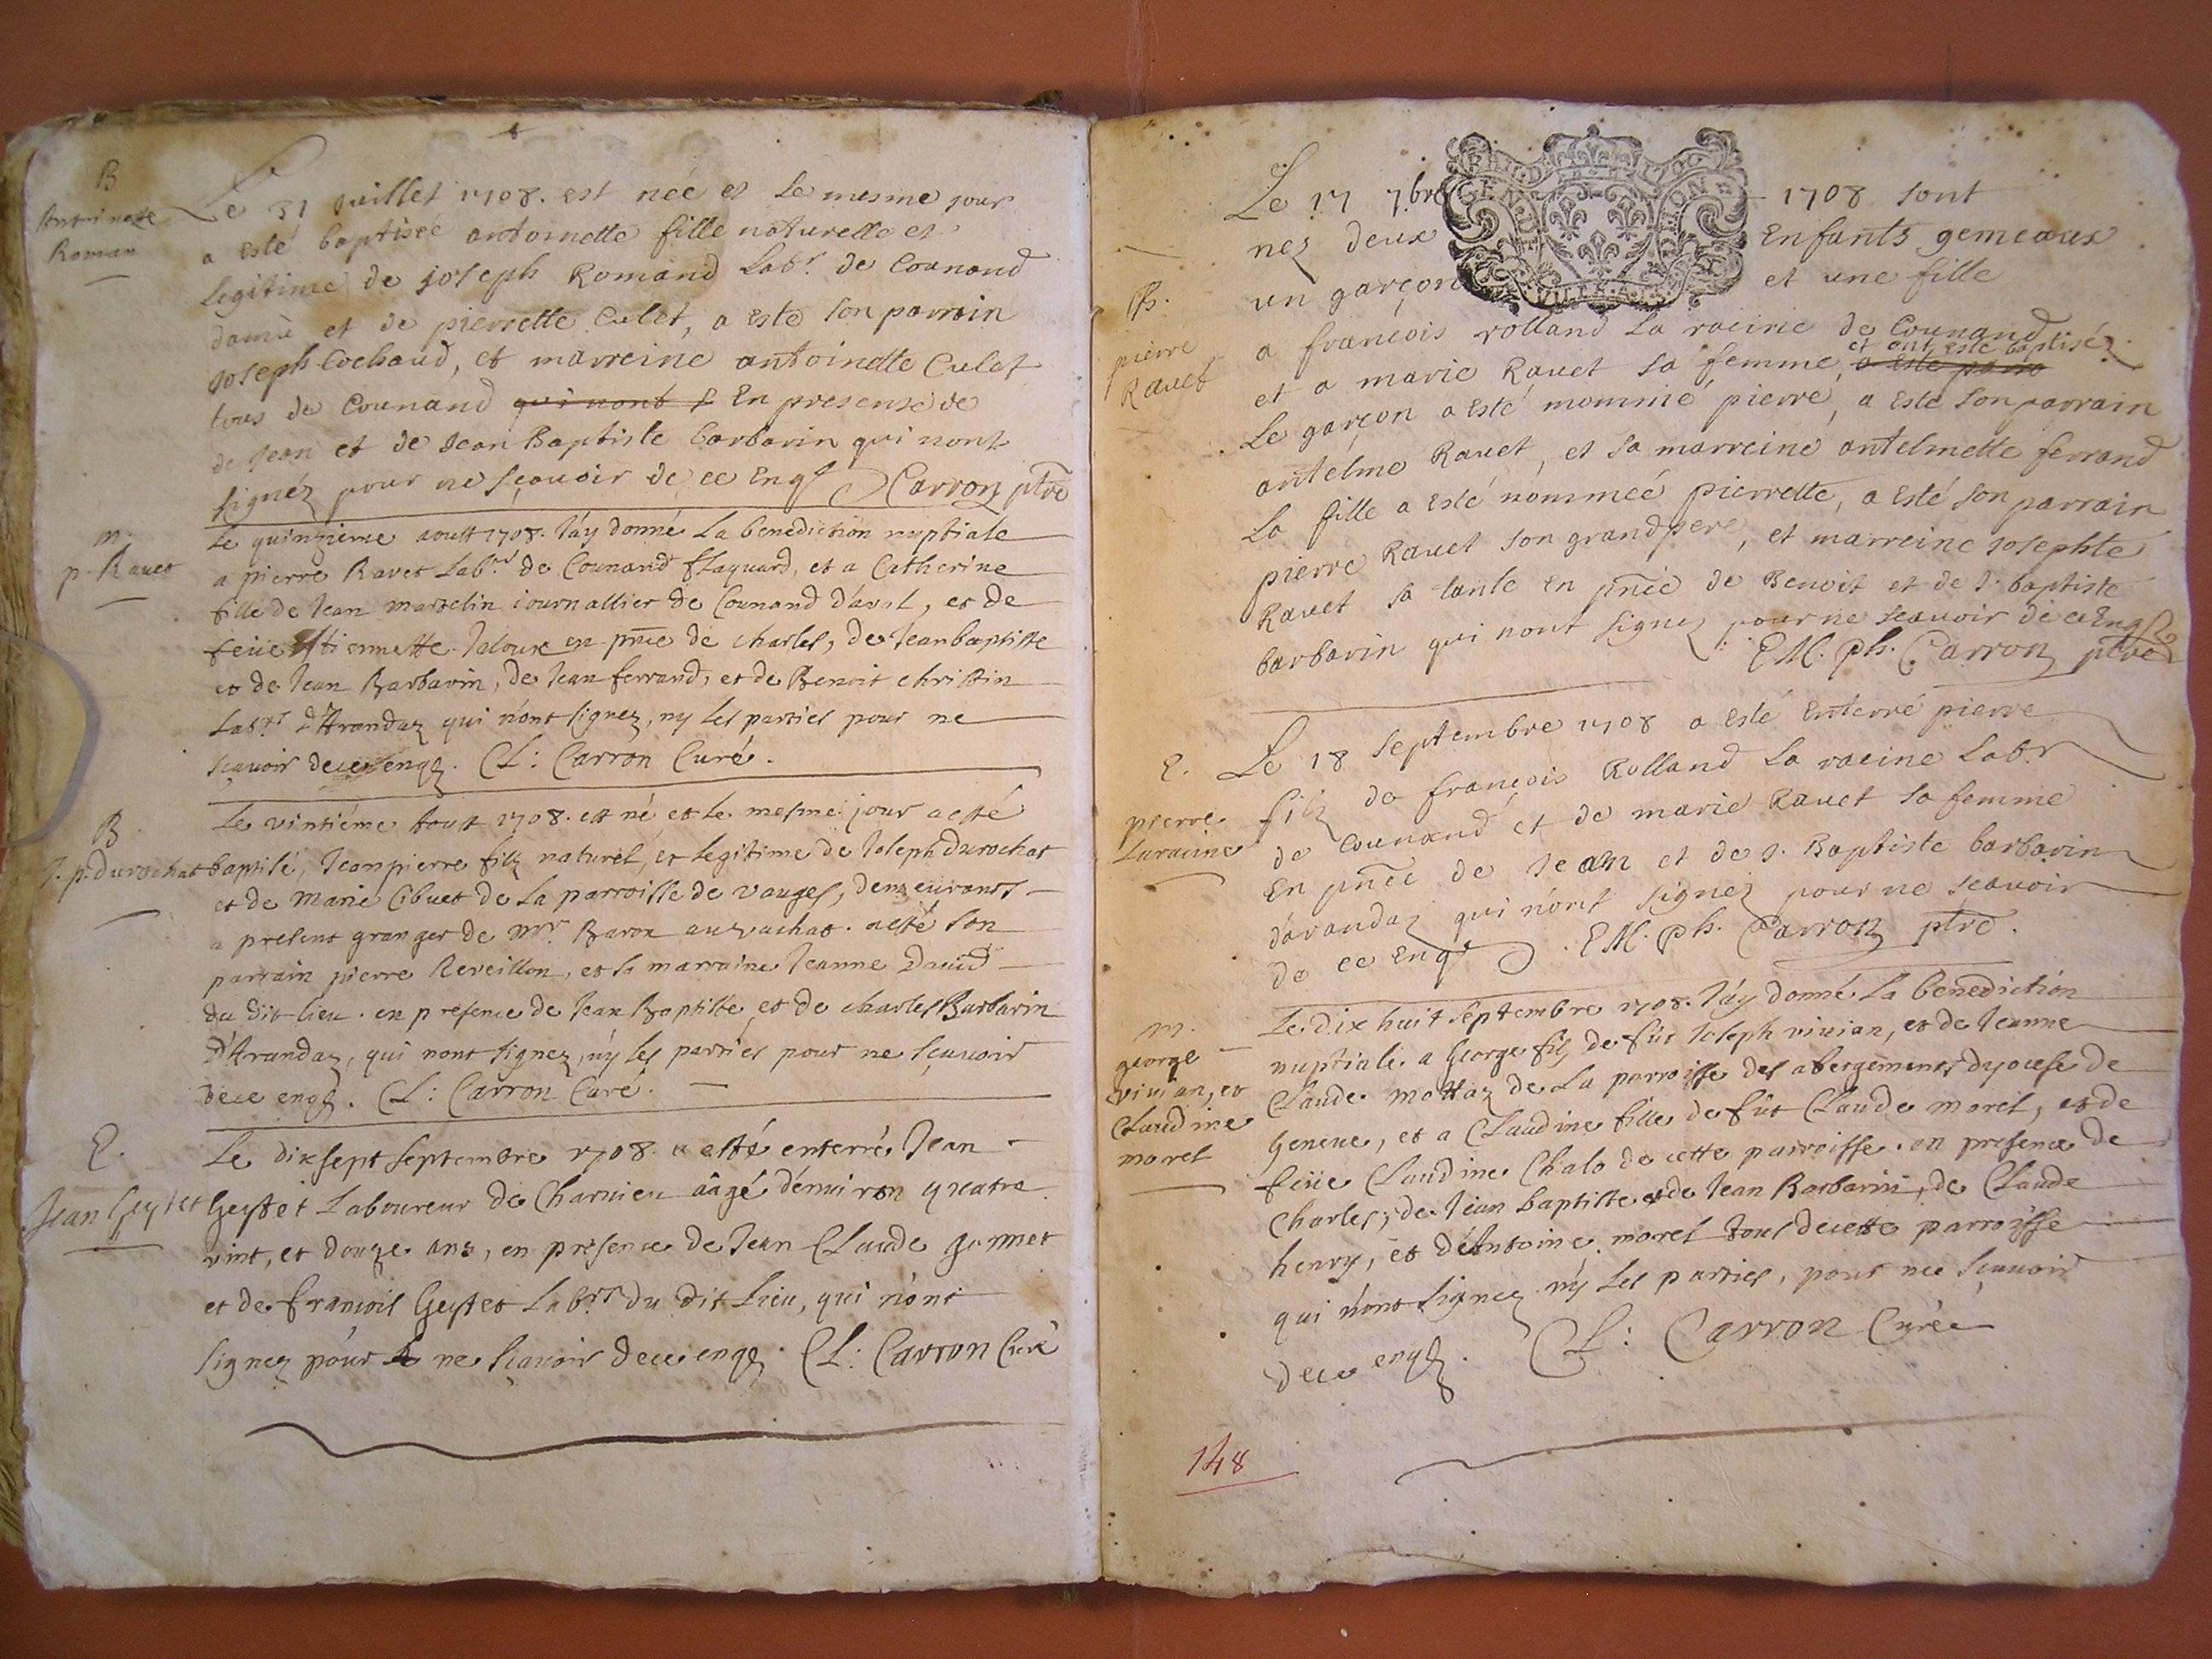 B
Antoinette
Roman
Le 31 Juillet 1708. est née et le mesme jour
a esté baptisée antoinette fille naturelle et
legitime de joseph Romand Labr. de Counand
damū et de pierrette Culet, a este son parrain
joseph Cochaud, et marreine antoinette Culet
tous de Counand qui nont s En presense de
de jean et de Jean Baptiste barbarin qui nont
signéz pour ne sçavoir de ce Enq Carron ptre
m.
p. Ravet
Le quinzieme aoust 1708. J'ay donné La benediction nuptiale
a pierre Ravet Labr. de Counand Flaquard, et a Catherine
fille de Jean marcelin iournallier de Counand d'aval, et de
feüe Estiennette Jaloux en pnce de Charles, de Jean baptiste
et de Jean Barbarin, de Jean ferrand, et de Benoit Christin
Labrs. d'Arandaz qui n'ont signez, ny les parties pour ne
sçavoir de ce enq. CL: Carron Curé.
B
J. p. Durochat
Le vintiéme Aout 1708. est né et le mesme jour a esté
baptisé, Jean pierre filz naturel, et legitime de Joseph Durochat
et de Marie Cibuet de La parroisse de vauges, demeurants
a present granger de Mr. Baron au vachat. a esté son
parrain pierre Reveillon, et sa marraine Jeanne David
du dit lieu. en presence de Jean Baptiste et de Charles Barbarin
d'Arandaz, qui nont signez, ny les parties pour ne sçavoir
de ce enq. CL: Carron Curé.
E.
Jean Geystet
Le dix sept Septembre 1708. a esté enterré Jean
Geystet Laboureur de Charvieu aâgé d'environ quatre
vint, et douze ans, en presence de Jean Claude gonnet
et de françois Geystet Labrs. du dit Lieu, qui n'ont
signez pour ne sçavoir de ce enq. CL: Carron Curé
Le 17 7.bre 1708 sont
nez deux Enfants gemeaux
un garçon et une fille
Bs.
pierre
Ravet
a françois rolland La racine de Counand
et ont esté baptiséz
et a marie Ravet sa femme, a este parra
Le garçon a esté nommé pierre, a esté son parrain
antelme Ravet, et sa marreine antelmette ferrand
La fille a esté nommeé pierrette, a esté son parrain
pierre Ravet son grand pere, et marreine josephte
Ravet sa tante en pñce de Benoit et de J. baptiste
barbarin qui nont signez pour ne scavoir de ce Enq
EM. ph. Carron ptre
E.
pierre
Laracine
Le 18 septembre 1708 a esté Enterré pierre
filz de françois Rolland La racine Labr.
de Counand et de marie Ravet sa femme
En pñce de Jean et de J. Baptiste barbarin
d'arandaz qui n'ont signez pour ne sçavoir
de ce Enq. EM. Ph. Carron ptre.
m.
george
vivian, et
Claudine
morel
Le dix huit septembre 1708. J'ay donné La benediction
nuptiale a George filz de füt Joseph vivian, et de Jeanne
Claude mottaz de La parroisse des abergements dyocese de
Geneve, et a Claudine fille de füt Claude morel, et de
feüe Claudine Chalo de cette parroisse. en presence de
Charles, de Jean baptiste et de Jean Barbarin, de Claude
henry, et d'Antoine morel tous de cette parroisse
qui n'ont signez ny les parties, pour ne sçavoir
de ce enq. CL: Carron Curé
148